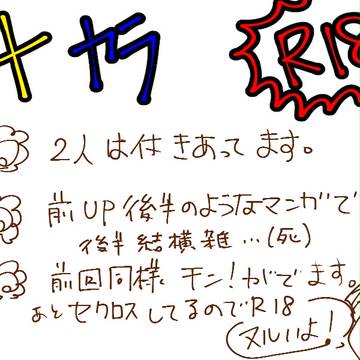 キャラ R18
2人は付きあってます。
前UP後半のようなマンガで
後半結構雑…(死)
前回同様、チン!がでます。
あとセクロスしてるのでR18
ヌルいよ!